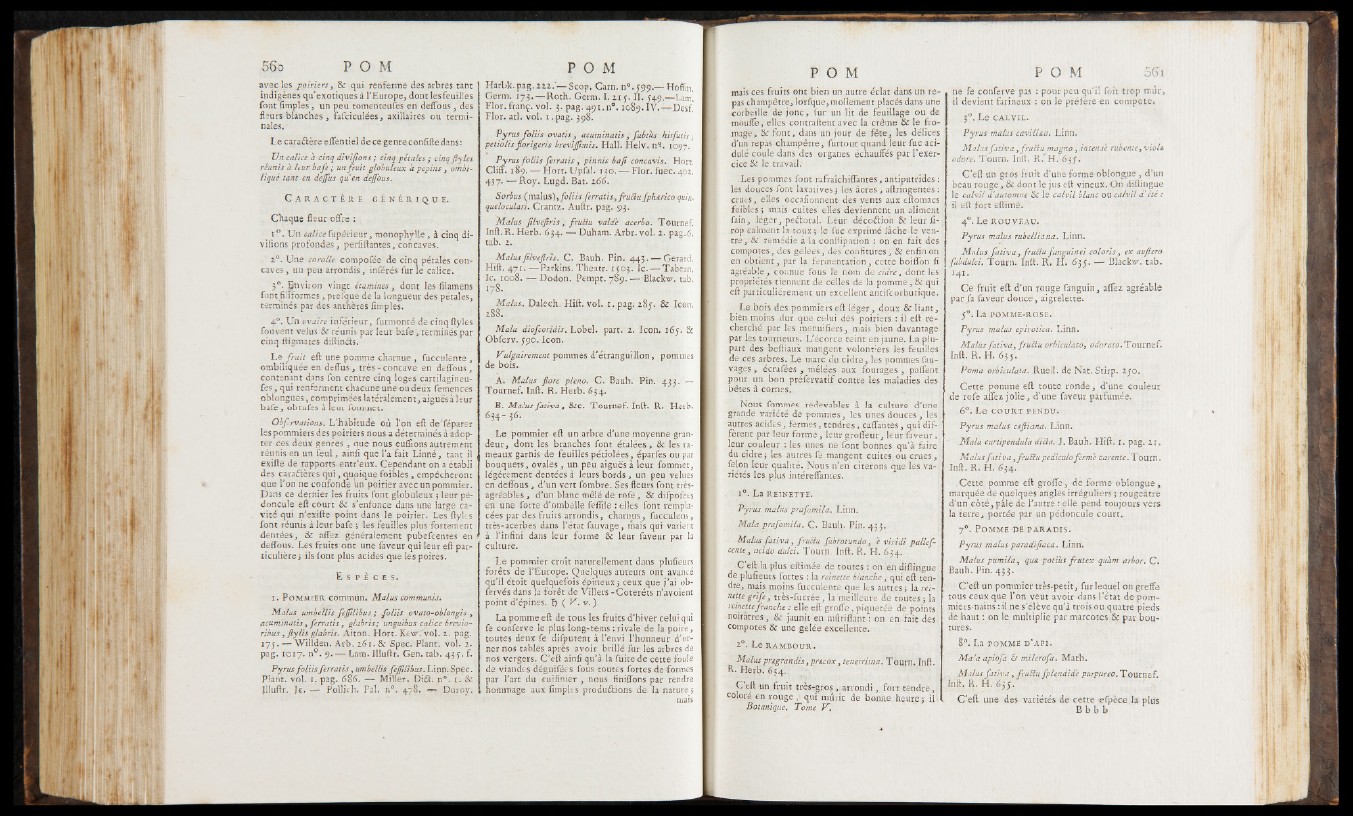 560 P O M
avec les poiriers, & qui renferme des arbres tant
indigènes qu'exotiques à l'Europe, dont les feuilles
sont simples, un peu tomenteuses en dessous, des
fleurs blanches, fasciculées, axillaires ou termi-
nales.
Le caractère essentiel de ce genre consiste dans:
Un calice à cinq divisions; cinq pétales; cinq styles
réunis à leur base; un fruit globuleux à pepins, ombi-
liqué tant en dessus qu'en dessous.
CARACTÈRE GÉNÉRIQUE.
Chaque fleur offre:
1°. Un calice supérieur, monophylle, à cinq di-
visions profondes, persistantes, concaves.
2°. Une corolle composée de cinq pétales con-
caves, un peu arrondis, insérés sur le calice.
3°. Environ vingt étamines, dont les filamens
sont filiformes, presque de la longueur des pétales,
terminés par des anthères simples.
4°. Un ovaire inférieur, surmonté de cinq styles
souvent velus & réunis par leur base, terminés par
cinq stigmates distincts.
Le fruit est une pomme charnue, succulente,
ombiliquée en dessus, très-concave en dessous,
contenant dans son centre cinq loges cartilagineu-
ses, qui renferment chacune une ou deux semences
oblongues, comprimées latéralement, aiguës à leur
base, obtuses à leur sommet.
Observations. L'habitude où l'on est de séparer
les pommiers des poiriers nous a déterminés à adop-
ter ces deux genres, que nous eussions autrement
réunis en un seul, ainsi que l'a fait Linné, tant il
existe de rapports entr'eux. Cependant on a établi
des caractères qui, quoique foibles, empêcheront
que l'on ne confonde un poirier avec un pommier.
Dans ce dernier les fruits sont globuleux; leur pé-
doncule est court & s'enfonce dans une large ca-
vité qui n'existe point dans le poirier. Les styles
sont réunis à leur base; les feuilles plus fortement
dentées, & assez généralement pubescentes en
dessous. Les fruits ont une saveur qui leur est par-
ticulière; ils sont plus acides que les poires.
ESPÈCES.
1. POMMIER commun. Malus communis.
Malus umbellis sessilibus; foliis ovato-oblongis,
acuminatis, serratis, glabris; unguibus calice brevio-
ribus, stylis glabris. Aiton. Hort. Kew. vol. 2. pag.
175. — Willden. Arb. 261. & Spec. Plant. vol. 2.
pag. 1017. n°. 9. — Lam. Illustr. Gen. tab. 435. f.
Pyrus foliis serratis, umbellis sessilibus. Linn. Spec.
Plant. vol. 1. pag. 686. — Miller. Dict. n°. 1. &
Illustr. Ic. — Pollich. Pal. n°. 478. — Duroy.
P O M
Harbk. pag. 222. — Scop. Carn. n°. 599. — Hoffm.
Germ. 173. — Roth. Germ. I. 215. II. 549. — Lam.
Flor. franç. vol. 3. pag. 491. n°. 1089. IV. — Desf.
Flor. atl. vol. 1. pag. 398.
Pyrus foliis ovatis, acuminatis, subtùs hirsutis;
petiolis florigeris brevissimis. Hall. Helv. n°. 1097.
Pyrus foliis serratis, pinnis basi concavis. Hort.
Cliff. 189. — Hort. Upsal. 130. — Flor. suec. 402.
437. — Roy. Lugd. Bat. 266.
Sorbus (malus), foliis serratis, fructu sphærico quin-
queloculari. Crantz. Austr. pag. 93.
Malus silvestris, fructu valdè acerbo. Tournef.
Inst. R. Herb. 634. — Duham. Arbr. vol. 2. pag. 6.
tab. 2.
Malus silvestris. C. Bauh. Pin. 443. — Gerard.
Hist. 471. — Parkins. Theatr. 1503. Ic. — Tabern.
Ic. 1008. — Dodon. Pempt. 789. — Blackw. tab.
178.
Malus. Dalech. Hist. vol. 1. pag. 285. & Icon.
288.
Mala dioscoridis. Lobel. part. 2. Icon. 165. &
Observ. 590. Icon.
Vulgairement pommes d'étranguillon, pommes
de bois.
A. Malus flore pleno. C. Bauh. Pin. 433. —
Tournef. Inst. R. Herb. 634.
B. Malus sativa, &c. Tournef. Inst. R. Herb.
634-36.
Le pommier est un arbre d'une moyenne gran-
deur, dont les branches sont étalées, & les ra-
meaux garnis de feuilles pétiolées, éparses ou par
bouquets, ovales, un peu aiguës à leur sommet,
légérement dentées à leurs bords, un peu velues
en dessous, d'un vert sombre. Ses fleurs sont très-
agréables, d'un blanc mêlé de rose, & disposées
en une sorte d'ombelle sessile: elles sont rempla-
cées par des fruits arrondis, charnus, succulens,
très-acerbes dans l'état sauvage, mais qui varient
à l'infini dans leur forme & leur saveur par la
culture.
Le pommier croît naturellement dans plusieurs
forêts de l'Europe. Quelques auteurs ont avancé
qu'il étoit quelquefois épineux; ceux que j'ai ob-
servés dans la forêt de Villers-Coterêts n'avoient
point d'épines. ♄ (V. v.)
La pomme est de tous les fruits d'hiver celui qui
se conserve le plus long-tems: rivale de la poire,
toutes deux se disputent à l'envi l'honneur d'or-
ner nos tables après avoir brillé sur les arbres de
nos vergers. C'est ainsi qu'à la suite de cette foule
de viandes déguisées sous toutes sortes de formes
par l'art du cuisinier, nous finissons par rendre
hommage aux simples productions de la nature;
mais
P O M
mais ces fruits ont bien un autre éclat dans un re-
pas champêtre, lorsque, mollement placés dans une
corbeille de jonc, sur un lit de feuillage ou de
mousse, elles contrastent avec la crême & le fro-
mage, & font, dans un jour de fête, les délices
d'un repas champêtre, surtout quand leur suc aci-
dulé coule dans des organes échauffés par l'exer-
cice & le travail.
Les pommes sont rafraîchissantes, antiputrides:
les douces sont laxatives; les âcres, astringentes:
crues, elles occasionnent des vents aux estomacs
foibles; mais cuites elles deviennent un aliment
sain, léger, pectoral. Leur décoction & leur si-
rop calment la toux; le suc exprimé lâche le ven-
tre, & remédie à la constipation: on en fait des
compotes, des gelées, des confitures, & enfin on
en obtient, par la fermentation, cette boisson si
agréable, connue sous le nom de cidre, dont les
propriétés tiennent de celles de la pomme, & qui
est particuliérement un excellent antiscorbutique.
Le bois des pommiers est léger, doux & liant,
bien moins dur que celui des poiriers: il est re-
cherché par les menuisiers, mais bien davantage
par les tourneurs. L'écorce teint en jaune. La plu-
part des bestiaux mangent volontiers les feuilles
de ces arbres. Le marc du cidre, les pommes sau-
vages, écrasées, mêlées aux fourages, passent
pour un bon préservatif contre les maladies des
bêtes à cornes.
Nous sommes redevables à la culture d'une
grande variété de pommes, les unes douces, les
autres acides, fermes, tendres, cassantes, qui dif-
fèrent par leur forme, leur grosseur, leur saveur,
leur couleur: les unes ne sont bonnes qu'à faire
du cidre; les autres se mangent cuites ou crues,
selon leur qualité. Nous n'en citerons que les va-
riétés les plus intéressantes.
1°. La REINETTE.
Pyrus malus prasomila. Linn.
Mala prasomila. C. Bauh. Pin. 433.
Malus sativa, fructu subrotundo, è viridi pallef-
cente, acido dulci. Tourn. Inst. R. H. 634.
C'est la plus estimée de toutes: on en distingue
de plusieurs sortes: la reinette blanche, qui est ten-
dre, mais moins succulente que les autres; la rei-
nette grise, très-sucrée, la meilleure de toutes; la
reinette franche: elle est grosse, piquetée de points
noirâtres, & jaunit en mûrissant: on en fait des
compotes & une gelée excellence.
2°. Le RAMBOUR.
Malus prægrandis, præcox, tenerrima. Tourn. Inst.
R. Herb. 634.
C'est un fruit très-gros, arrondi, fort tendre,
coloré en rouge, qui mûrit de bonne heure; il
Botanique. Tome V.
P O M 561
ne se conserve pas: pour peu qu'il soit trop mûr,
il devient farineux: on le préfère en compote.
3°. Le CALVIL.
Pyrus malus cavillea. Linn.
Malus sativa, fructu magno, intensè rubente, violæ
odore. Tourn. Inst. R. H. 635.
C'est un gros fruit d'une forme oblongue, d'un
beau rouge, & dont le jus est vineux. On distingue
le calvil d'automne & le calvil blanc ou calvil d'été:
il est fort estimé.
4°. Le ROUVEAU.
Pyrus malus rubelliana. Linn.
Malus sativa, fructu sanguinei coloris, ex austero
subdulci. Tourn. Inst. R. H. 635. — Blackw. tab.
141.
Ce fruit est d'un rouge sanguin, assez agréable
par sa saveur douce, aigrelette.
5°. La POMME-ROSE.
Pyrus malus epirotica. Linn.
Malus sativa, fructu orbiculato, odorato. Tournef.
Inst. R. H. 635.
Poma orbiculata. Ruell. de Nat. Stirp. 250.
Cette pomme est toute ronde, d'une couleur
de rose assez jolie, d'une saveur parfumée.
6°. Le COURT PENDU.
Pyrus malus cestiana. Linn.
Mala curtipendula dicta. J. Bauh. Hist. 1. pag. 21.
Malus sativa, fructu pediculo fermè carente. Tourn.
Inst. R. H. 634.
Cette pomme est grosse, de forme oblongue,
marquée de quelques angles irréguliers; rougeâtre
d'un côté, pâle de l'autre: elle pend toujours vers
la terre, portée par un pédoncule court.
7°. POMME DE PARADIS.
Pyrus malus paradisiaca. Linn.
Malus pumila, quæ potiùs frutex quàm arbor. C.
Bauh. Pin. 433.
C'est un pommier très-petit, sur lequel on greffe
tous ceux que l'on veut avoir dans l'état de pom-
miers nains: il ne s'élève qu'à trois ou quatre pieds
de haut: on le multiplie par marcotes & par bou-
tures.
8°. La POMME D'API.
Mala apiosa & milerosa. Math.
Malus sativa, fructu splendidè purpureo. Tournef.
Inst. R. H. 635.
C'est une des variétés de cette espèce la plus
Bbbb